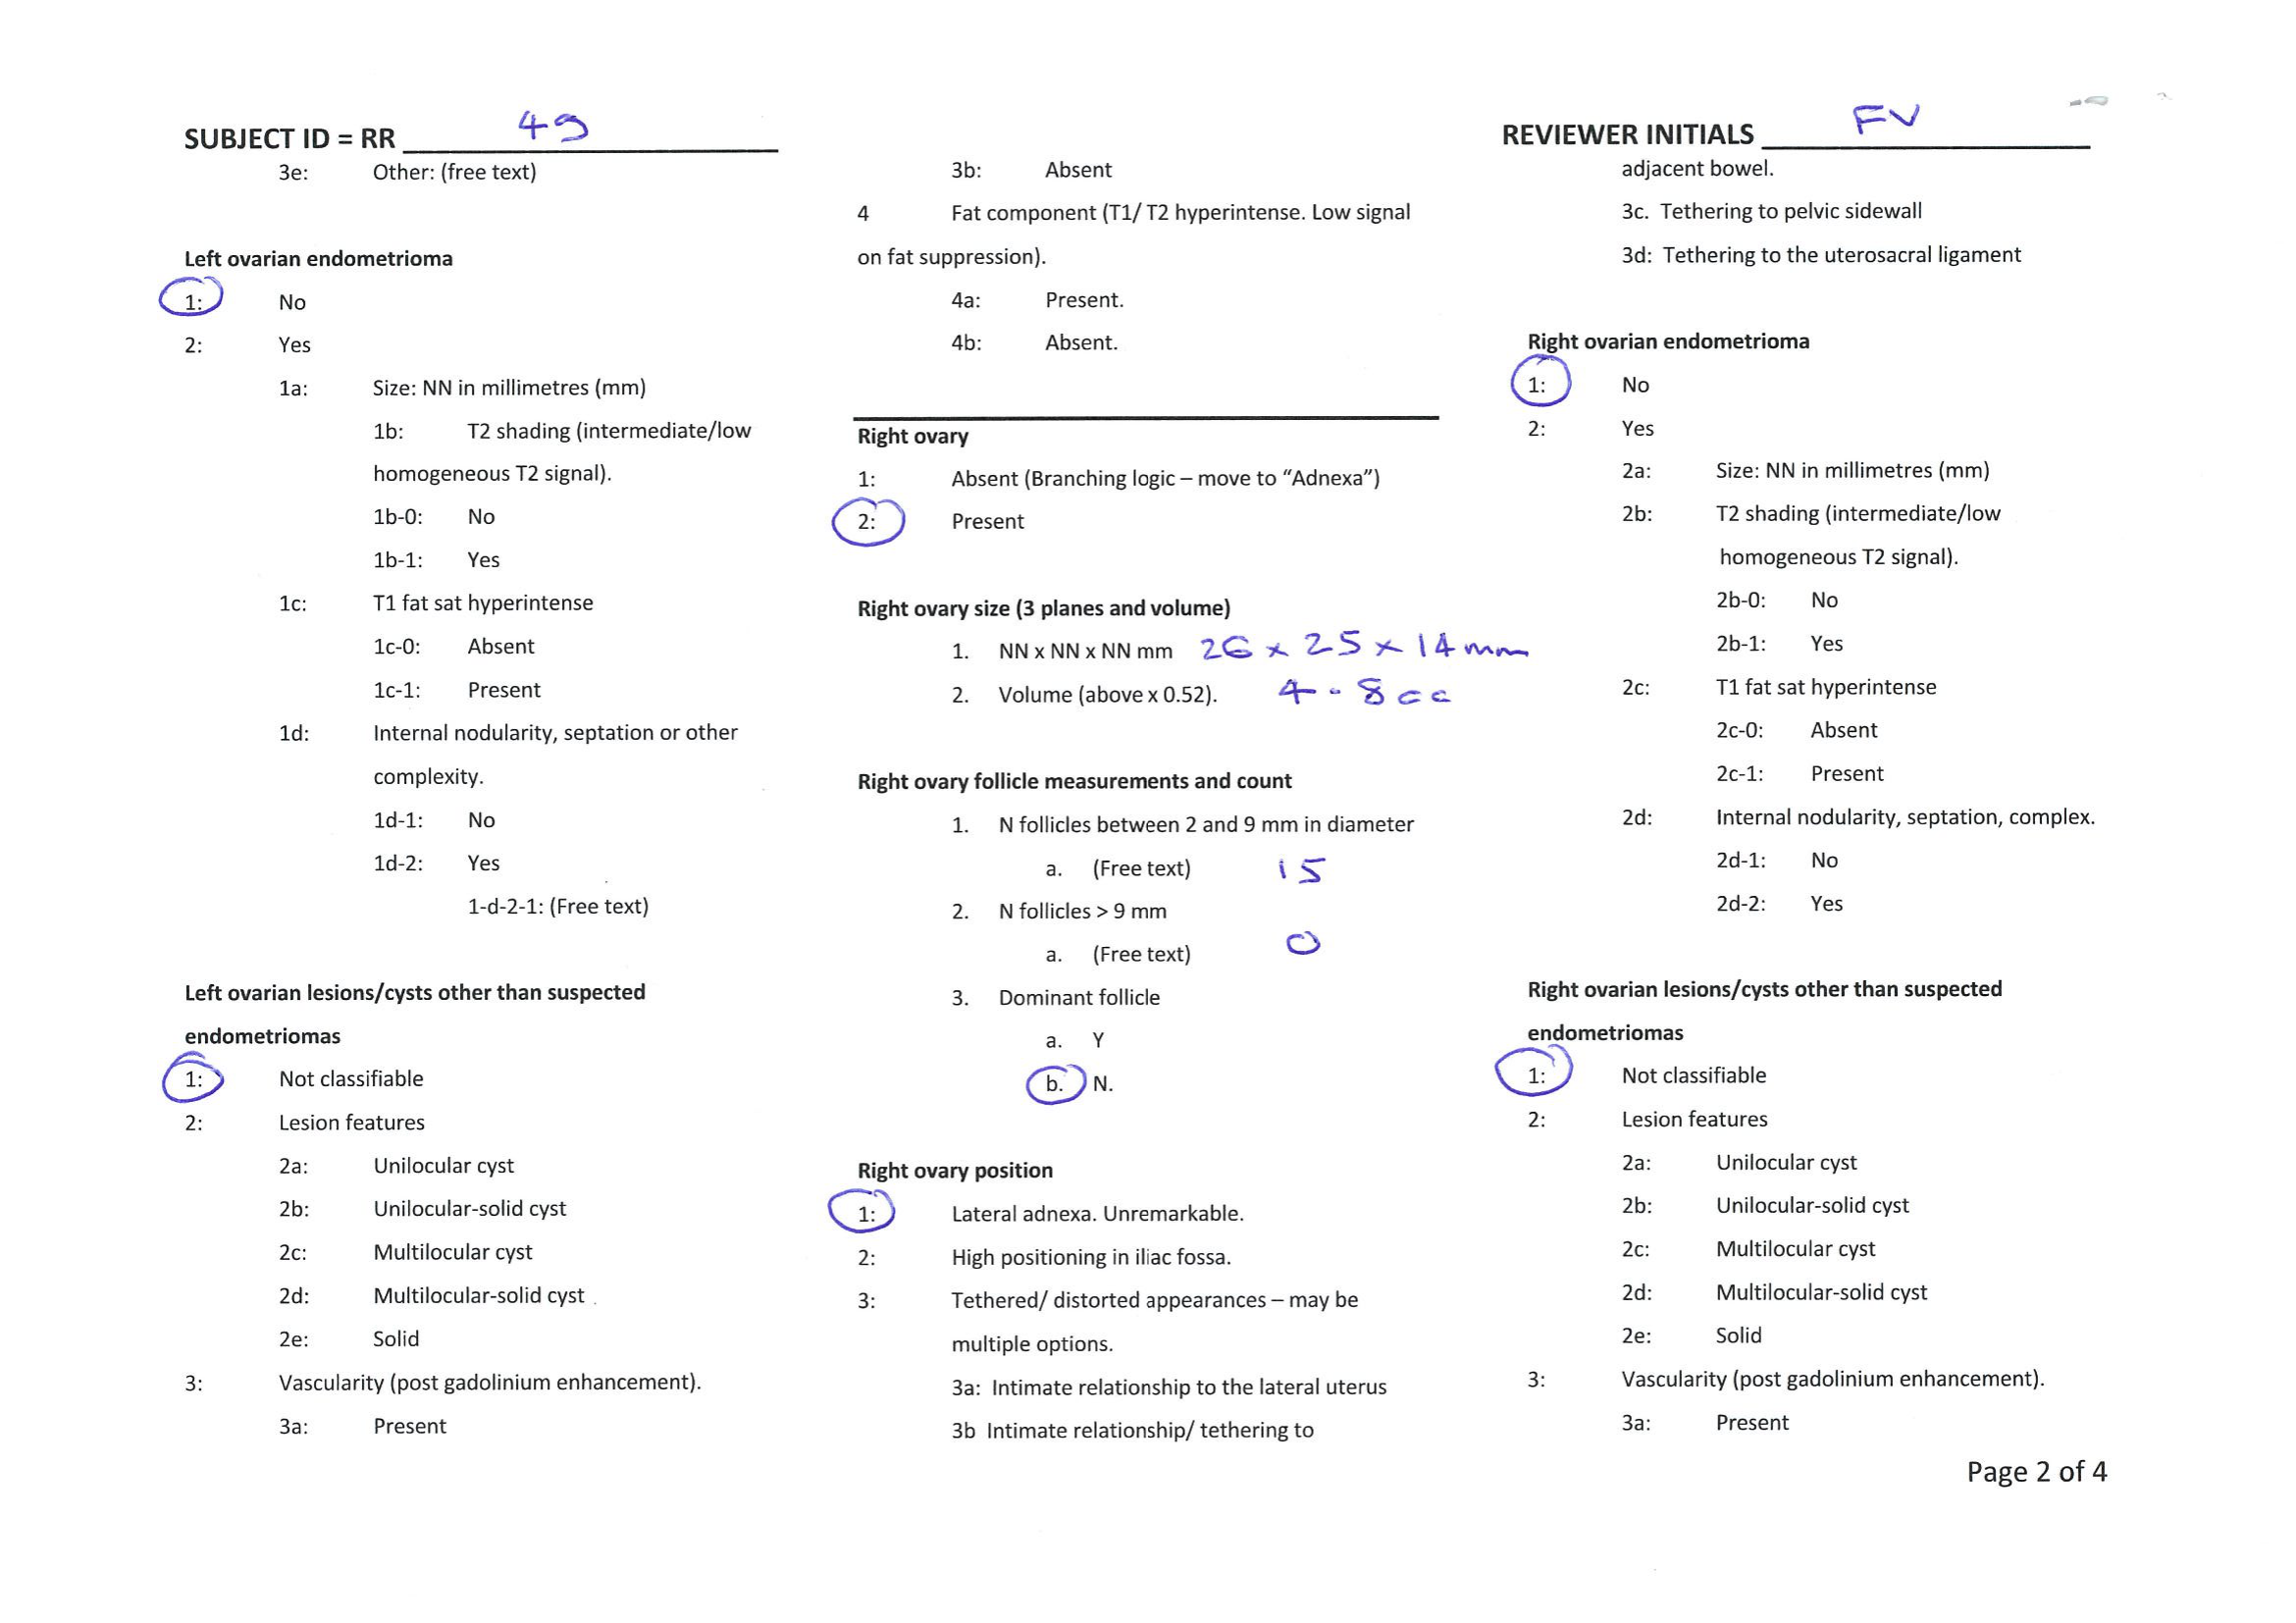 SUBJECT ID = RR 49
3e: Other: (free text)
Left ovarian endometrioma
1: No
2: Yes
1a: Size: NN in millimetres (mm)
1b: T2 shading (intermediate/low
homogeneous T2 signal).
1b-0: No
1b-1: Yes
1c: T1 fat sat hyperintense
1c-0: Absent
1c-1: Present
1d: Internal nodularity, septation or other
complexity.
1d-1: No
1d-2: Yes
1-d-2-1: (Free text)
Left ovarian lesions/cysts other than suspected
endometriomas
1: Not classifiable
2: Lesion features
2a: Unilocular cyst
2b: Unilocular-solid cyst
2c: Multilocular cyst
2d: Multilocular-solid cyst
2e: Solid
3: Vascularity (post gadolinium enhancement).
3a: Present
3b: Absent
4 Fat component (T1/ T2 hyperintense. Low signal
on fat suppression).
4a: Present.
4b: Absent.
Right ovary
1: Absent (Branching logic – move to “Adnexa”)
2: Present
Right ovary size (3 planes and volume)
1. NN x NN x NN mm 26 x 25 x 14 mm
2. Volume (above x 0.52). 4.8 cc
Right ovary follicle measurements and count
1. N follicles between 2 and 9 mm in diameter
a. (Free text) 15
2. N follicles > 9 mm
a. (Free text) 0
3. Dominant follicle
a. Y
b. N.
Right ovary position
1: Lateral adnexa. Unremarkable.
2: High positioning in iliac fossa.
3: Tethered/ distorted appearances – may be
multiple options.
3a: Intimate relationship to the lateral uterus
3b Intimate relationship/ tethering to
REVIEWER INITIALS FV
adjacent bowel.
3c. Tethering to pelvic sidewall
3d: Tethering to the uterosacral ligament
Right ovarian endometrioma
1: No
2: Yes
2a: Size: NN in millimetres (mm)
2b: T2 shading (intermediate/low
homogeneous T2 signal).
2b-0: No
2b-1: Yes
2c: T1 fat sat hyperintense
2c-0: Absent
2c-1: Present
2d: Internal nodularity, septation, complex.
2d-1: No
2d-2: Yes
Right ovarian lesions/cysts other than suspected
endometriomas
1: Not classifiable
2: Lesion features
2a: Unilocular cyst
2b: Unilocular-solid cyst
2c: Multilocular cyst
2d: Multilocular-solid cyst
2e: Solid
3: Vascularity (post gadolinium enhancement).
3a: Present
Page 2 of 4